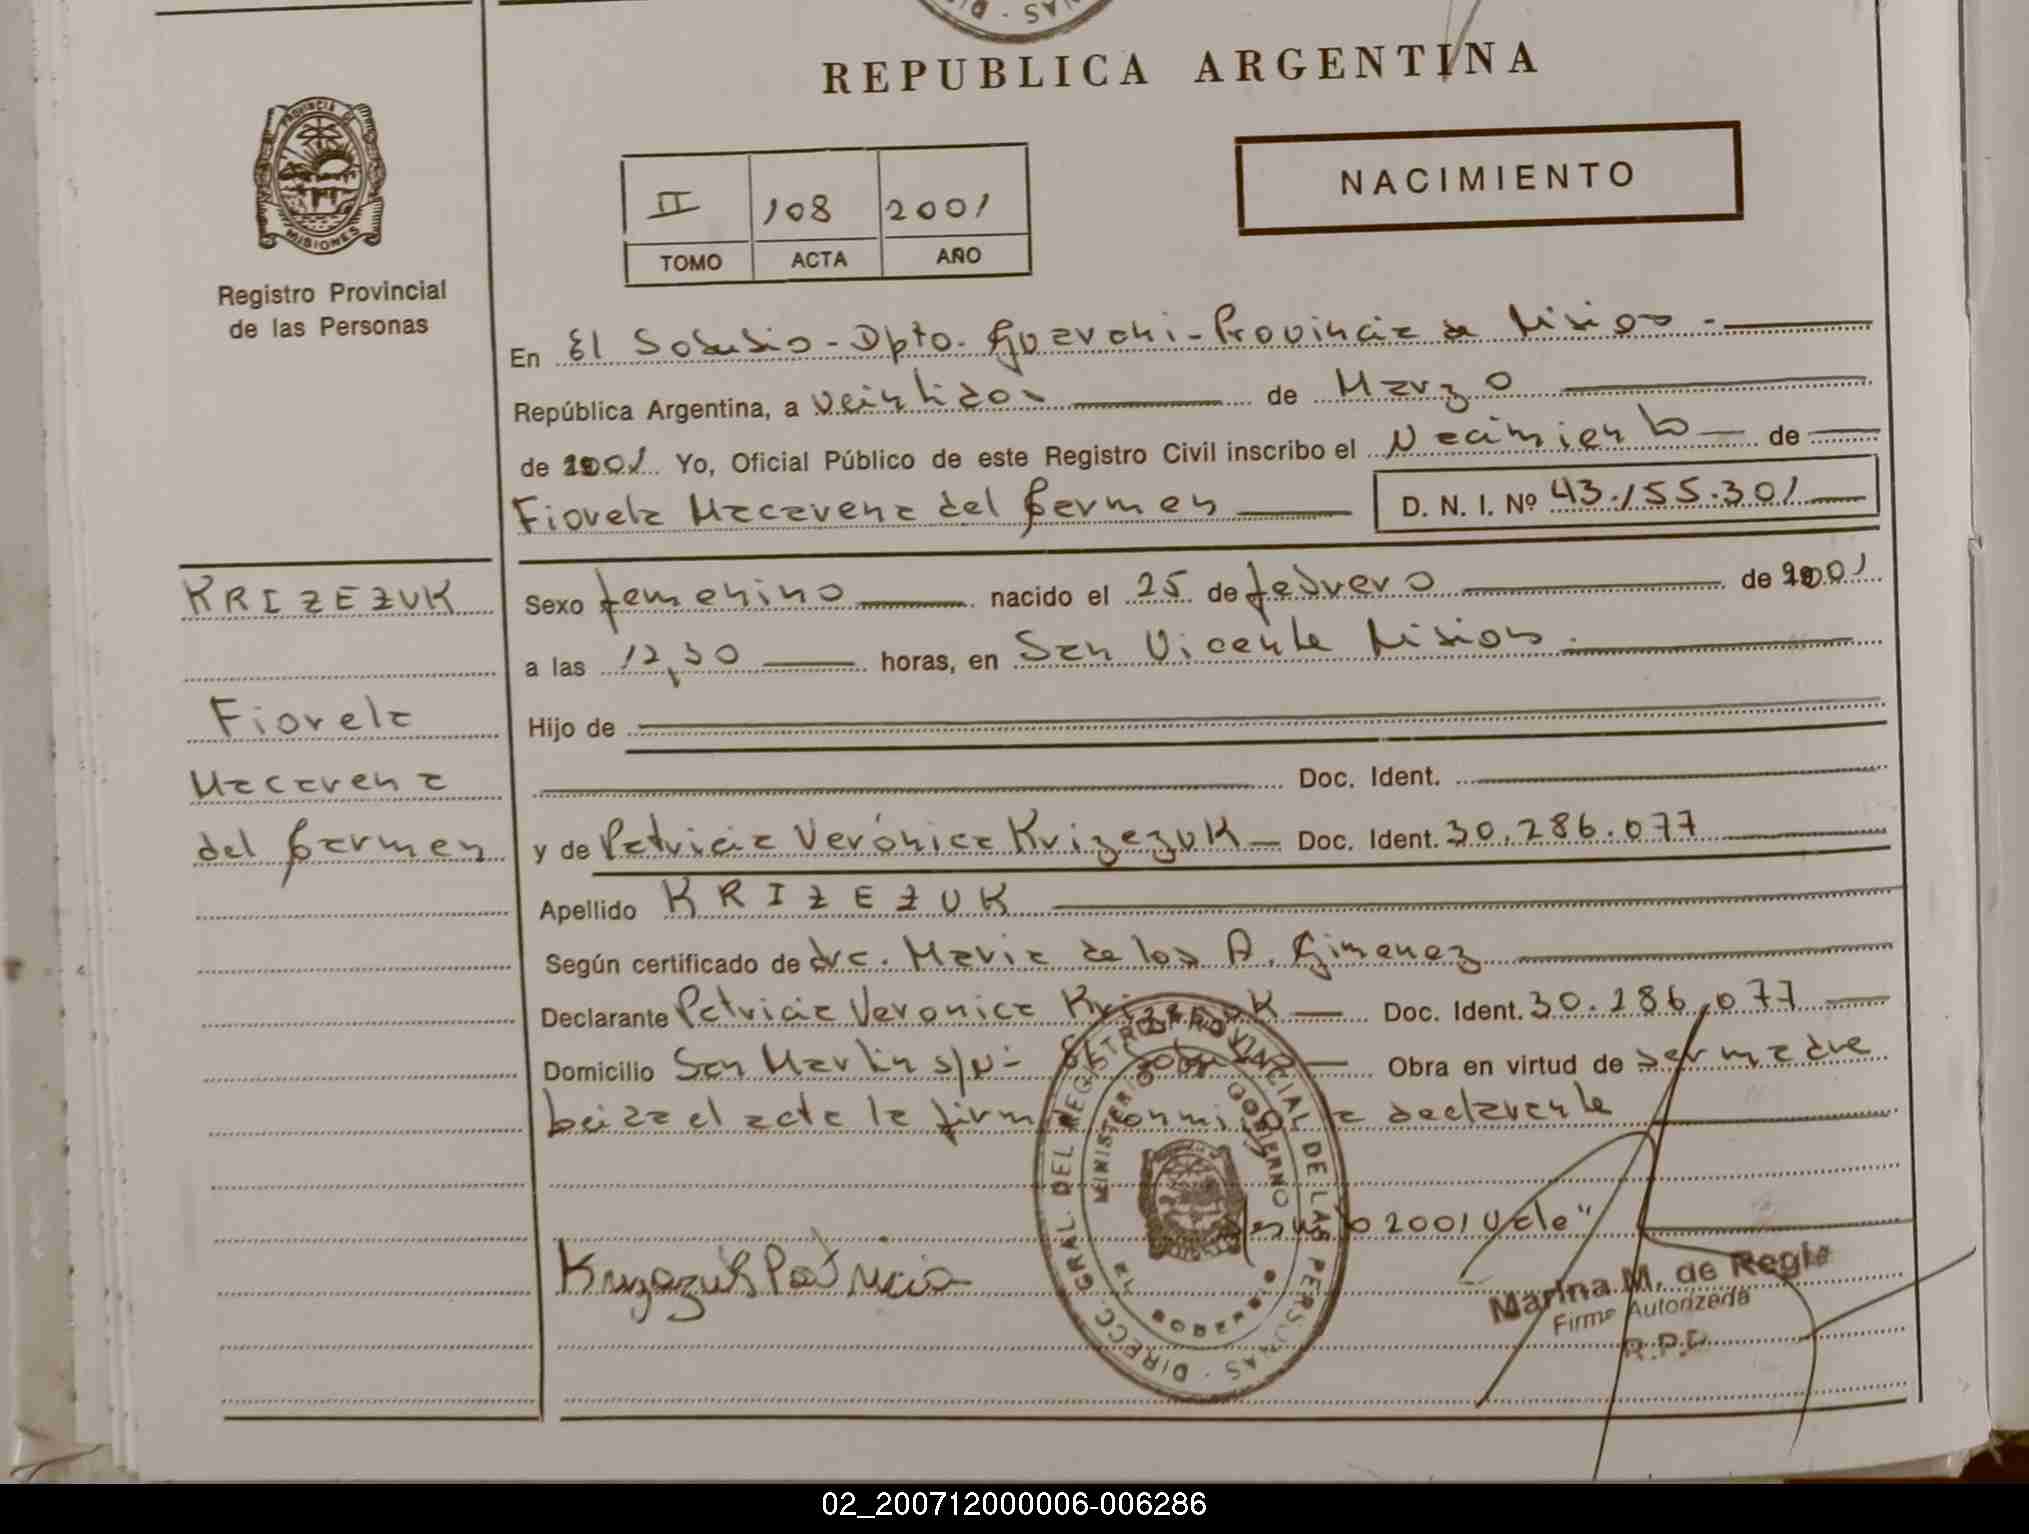 REPUBLICA ARGENTINA
PROVINCIA DE
MISIONES
Registro Provincial
de las Personas
II 108 2001
TOMO ACTA AÑO
NACIMIENTO
En El Soberbio - Dpto. Guarani - Provincia de Misiones -
República Argentina, a veintidos de Marzo
de 2001 Yo, Oficial Público de este Registro Civil inscribo el Nacimiento de
Fiorela Macarena del Carmen D. N. I. Nº 43.155.301
KRIZEZUK
Sexo femenino nacido el 25 de febrero de 2001
a las 12,30 horas, en San Vicente Misiones.
Fiorela
Hijo de
Macarena
Doc. Ident.
del Carmen
y de Patricia Verónica Krizezuk Doc. Ident. 30.286.077
Apellido KRIZEZUK
Según certificado de dra. Maria de los A. Gimenez
Declarante Patricia Veronica Krizezuk Doc. Ident. 30.286.077
Domicilio San Martin s/n - El Sober Obra en virtud de ser madre
leida el acta la firma conmigo la declarante
2001 Vale"
Krizezuk Patricia
DIRECC. GRAL. DEL REGISTRO PROVINCIAL DE LAS PERSONAS
MINISTERIO GOBIERNO
Marina M. de Regis
Firma Autorizada
R.P.P.
02_200712000006-006286